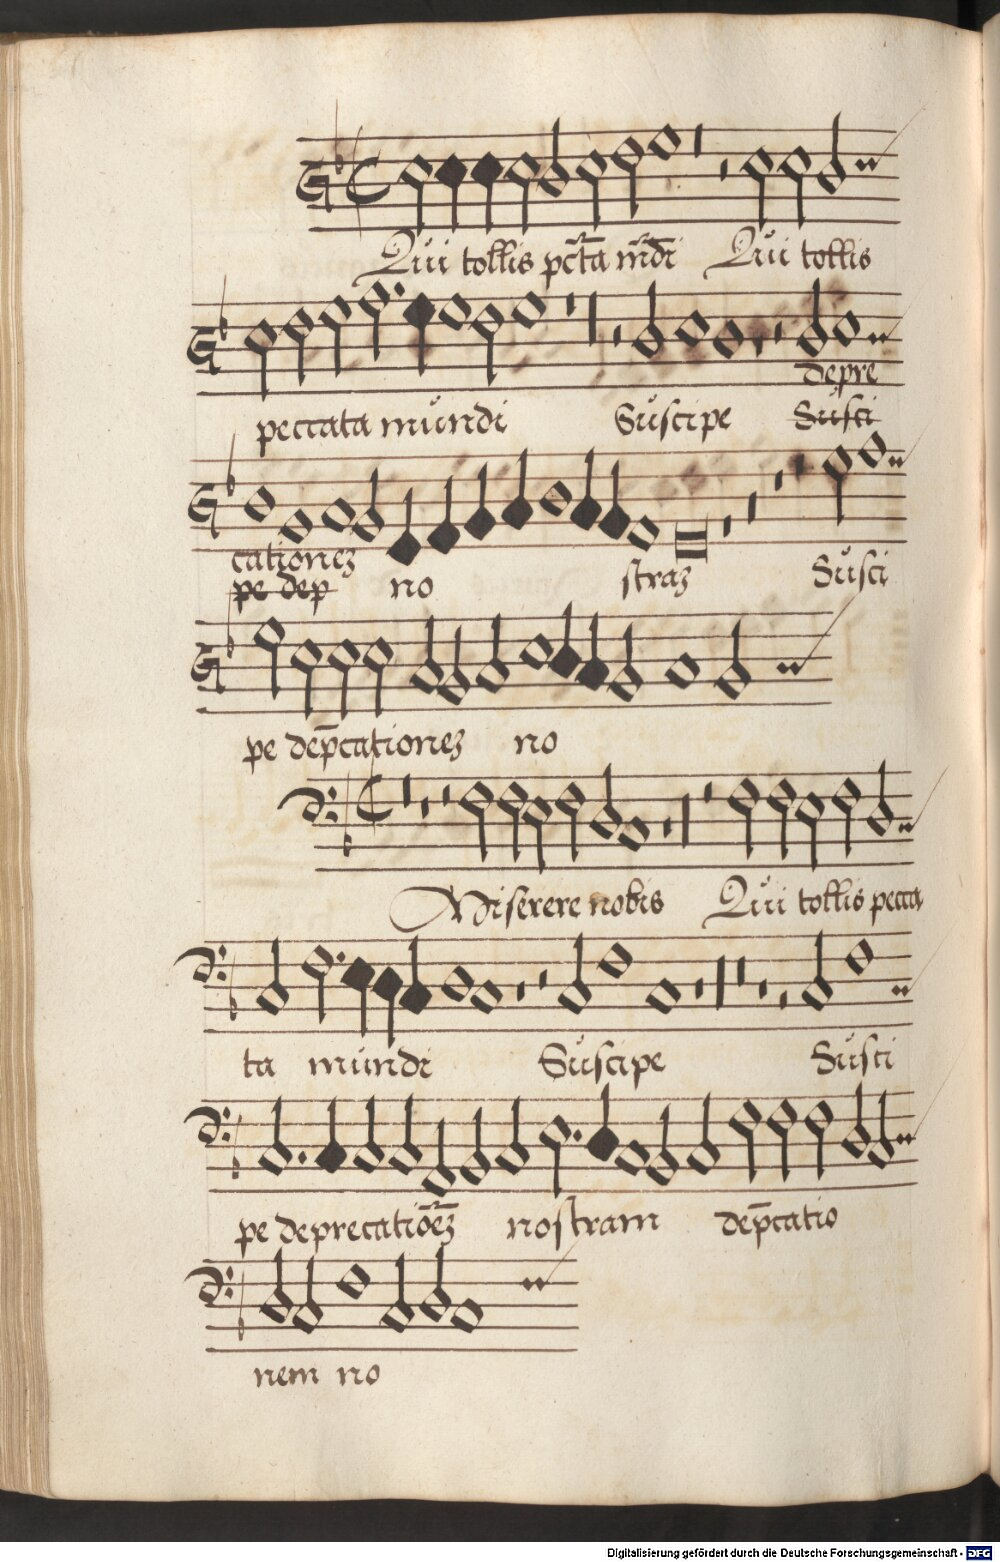 Qui tollis pc̄ta mūdi Qui tollis
depre
peccata mundi Suscipe Susci
cationez
pe dep no straz Susci
pe dep̄cationez no
Miserere nobis Qui tollis pecca
ta mundi Suscipe Susci
pe deprecatiōez nostram dep̄catio
nem no
Digitalisierung gefördert durch die Deutsche Forschungsgemeinschaft - DFG